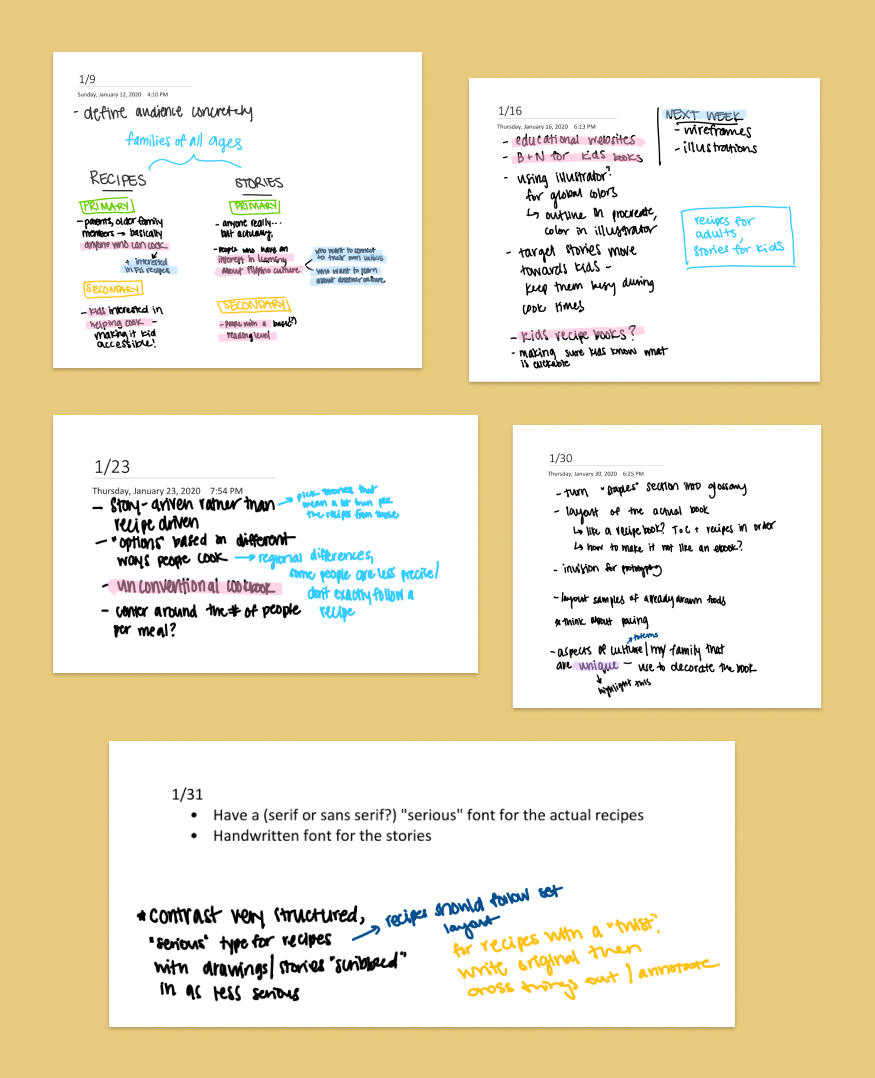 1/9
Sunday, January 12, 2020 4:10 PM
- define audience concretely
families of all ages
RECIPES
PRIMARY
- parents, older family
members → basically
anyone who can cook
+ interested
in Fil recipes
SECONDARY
- kids interested in
helping cook -
making it kid
accessible!
STORIES
PRIMARY
- anyone really...
but actually,
- people who have an
interest in learning
about filipino culture
who want to connect
to their own culture
who want to learn
about another culture
SECONDARY
- people with a basic(?)
reading level
1/16
Thursday, January 16, 2020 6:13 PM
- educational websites
- B+N for kids books
- using illustrator?
for global colors
↳ outline in procreate,
color in illustrator
- target stories more
towards kids -
keep them busy during
cook times
- kids recipe books?
- making sure kids know what
is clickable
NEXT WEEK
- wireframes
- illustrations
recipes for
adults,
stories for kids
1/23
Thursday, January 23, 2020 7:54 PM
- story-driven rather than
recipe driven
→ pick stories that
mean a lot then pick
the recipes from those
- "options" based on different
ways people cook
→ regional differences,
some people are less precise/
don't exactly follow a
recipe
- unconventional cookbook
- center around the # of people
per meal?
1/30
Thursday, January 30, 2020 6:25 PM
- turn "staples" section into glossary
- layout of the actual book
↳ like a recipe book? ToC + recipes in order
↳ how to make it not like an ebook?
- invision for prototyping
- layout samples of already drawn foods
* think about pacing
- aspects of culture/my family that
are unique - use to decorate the book
↓ highlight this
1/31
• Have a (serif or sans serif?) "serious" font for the actual recipes
• Handwritten font for the stories
* contrast very structured,
"serious" type for recipes
with drawings/stories "scribbled"
in as less serious
→ recipes should follow set
layout
for recipes with a "twist":
write original then
cross things out / annotate